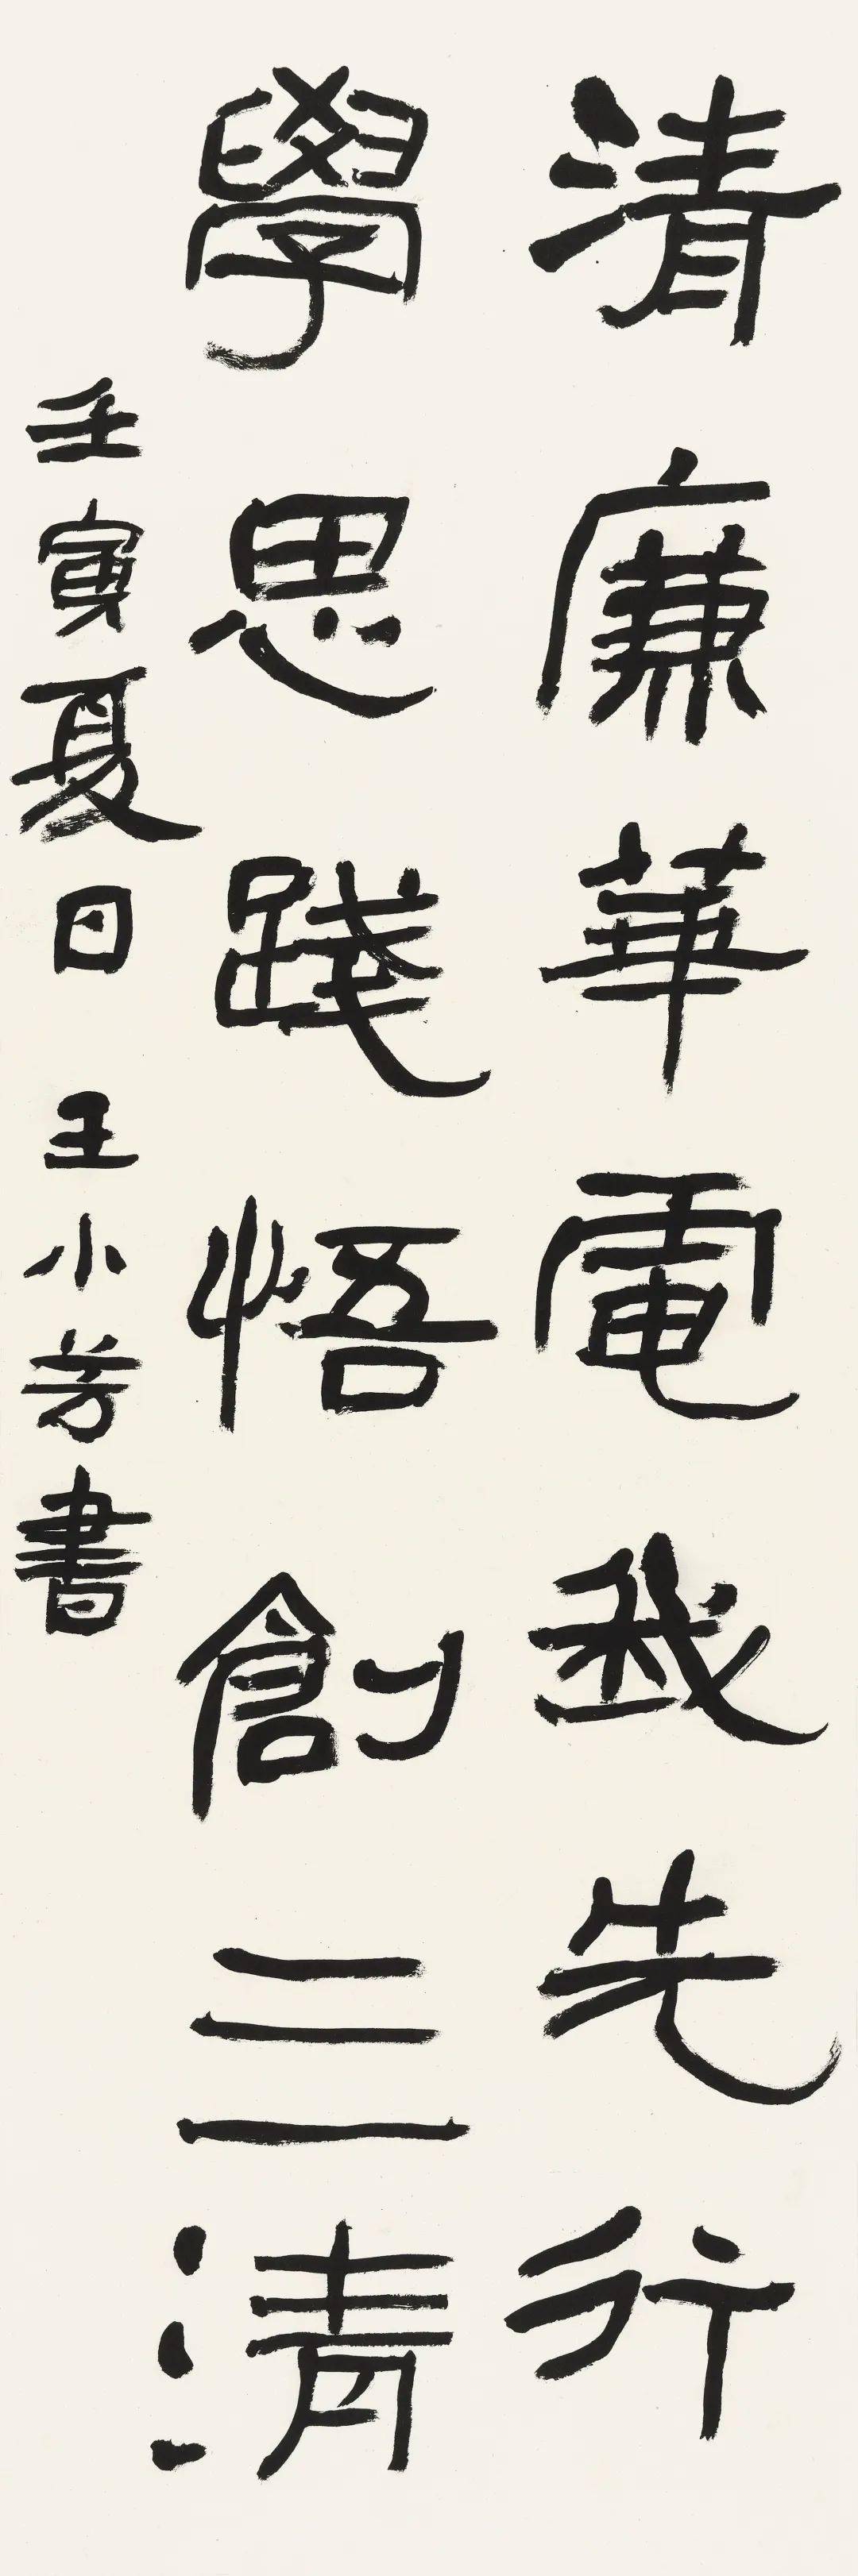 清廉華電我先行
學思踐悟創三清
壬寅夏日 王小芳書